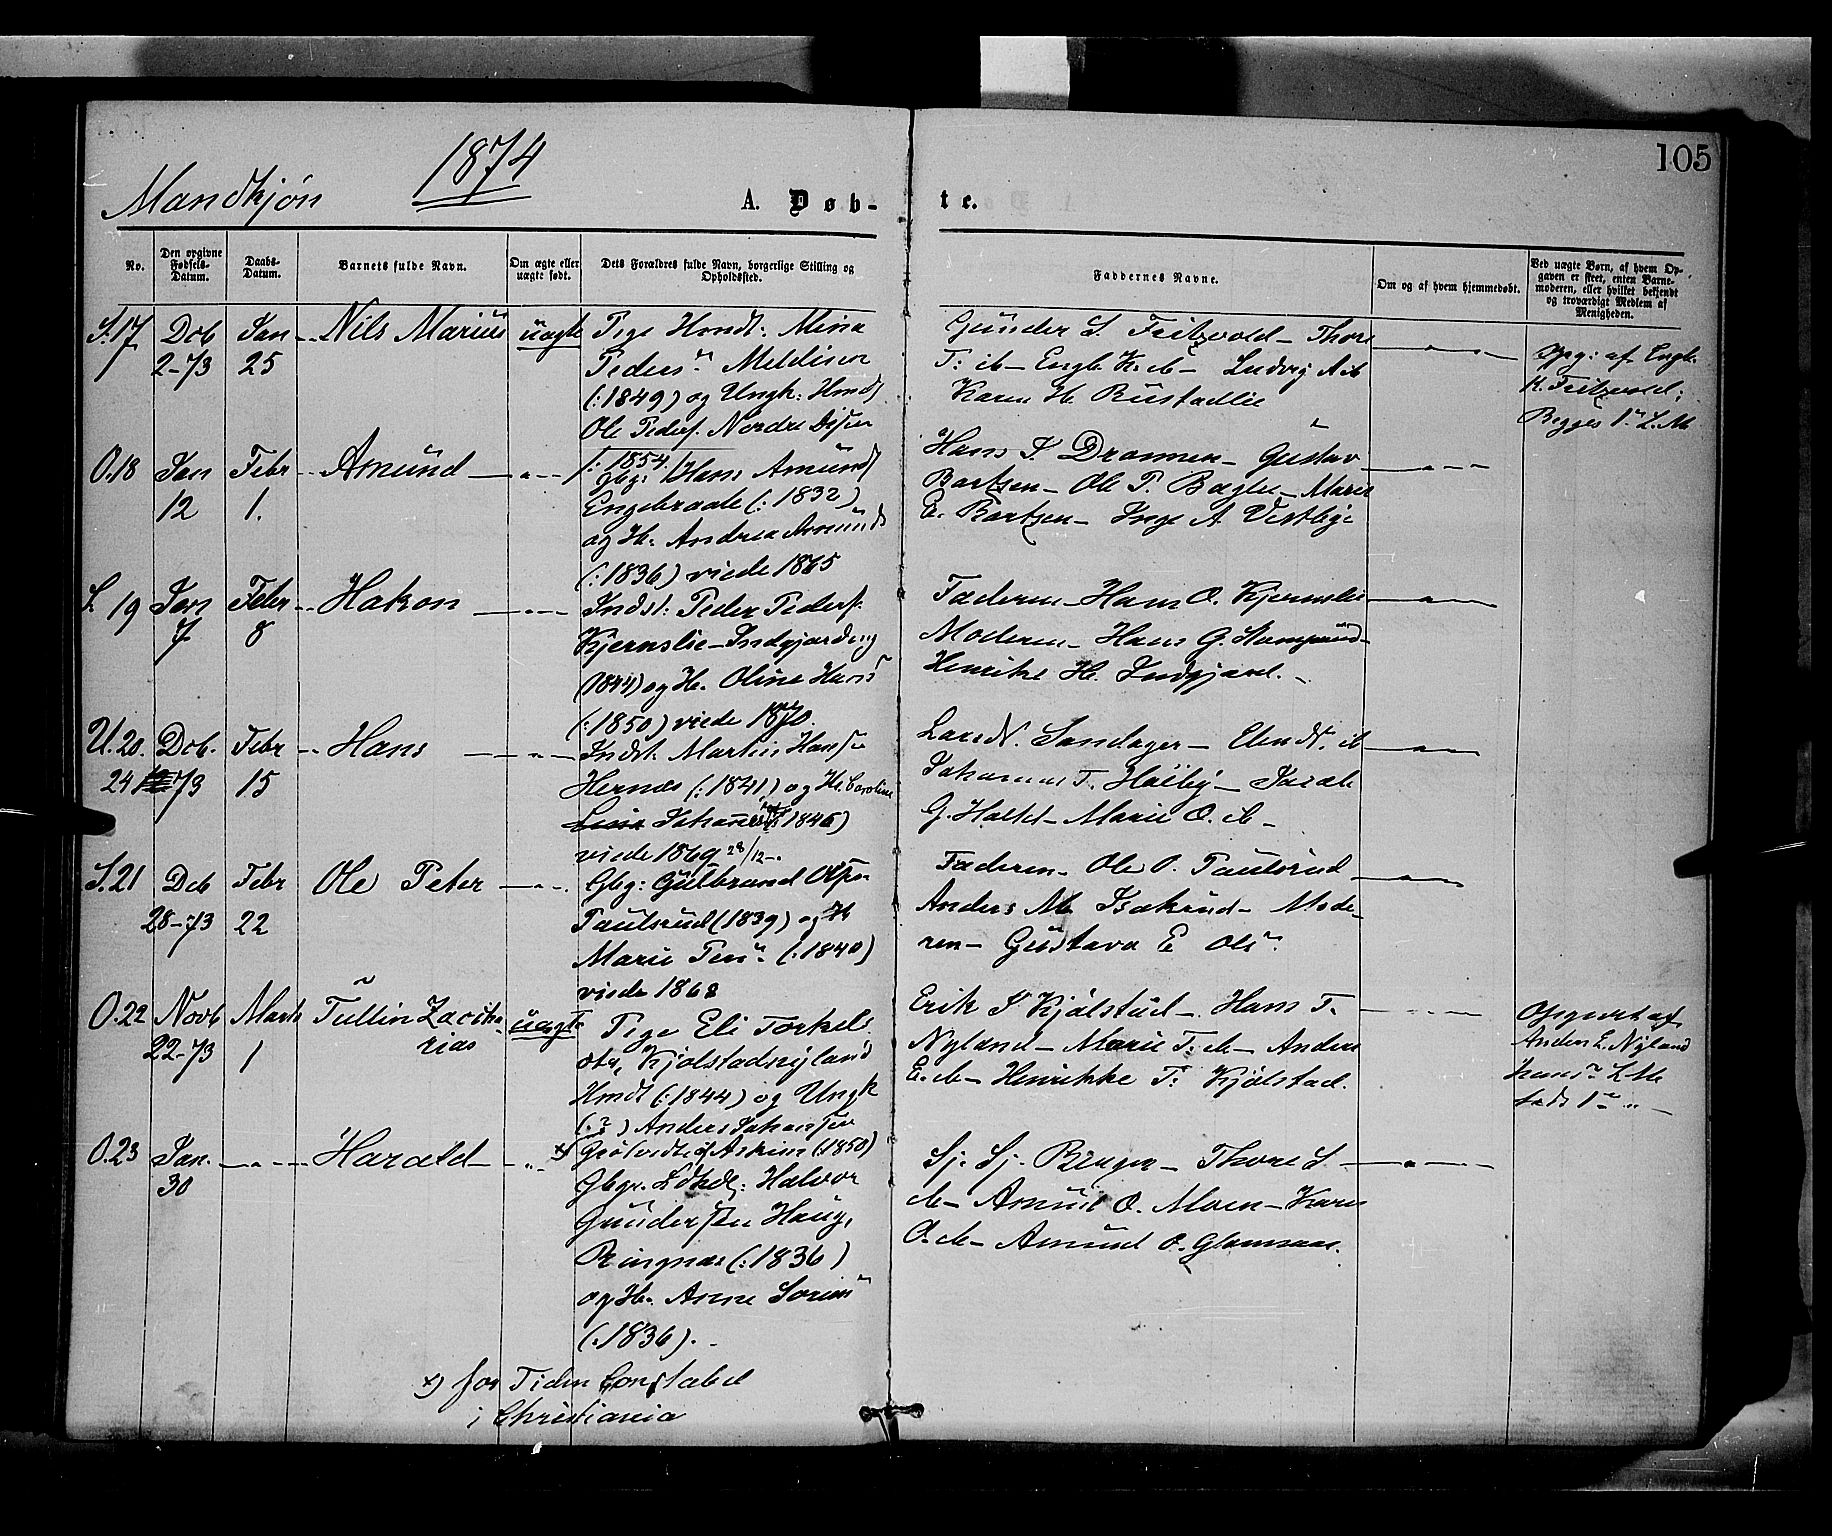 105
1874
Mandkjøn
A. Døb-
te.
No.
Den opgivne
Fødsels-
Datum.
Daabs-
Datum.
Barnets fulde Navn.
Om ægte eller
uægte født.
Dets Forældres fulde Navn, borgerlige Stilling og
Opholdssted.
Faddernes Navne.
Om og af hvem hjemmedøbt.
Ved uægte Børn, af hvem Op-
gaven er skeet, enten Barne-
moderen, eller hvilket bekjendt
og troværdigt Medlem af
Menigheden.
S. 17 Deb Jan Nils Marius uægte Pige Hmdt: Mina
2-73 25 Peders
(: 1849) og Ungk: Hmdt
Ole Peders. Nordre
Gunder S. Fritzvold - Thore
T: ib - Engb. K. ib - Ludvig A ib
Karen H. Rustadlie
Opg: af Engb.
K. Fritzvold;
Begges 1ste L. M.
O. 18 Jan Febr Amund (: 1854.) Gbg: Hans Amunds
12 1. Engebraate (: 1832)
og H. Andrea Amunds
(: 1836) viede 1865
Hans Drammen - Gustav
Bartzen - Ole P. - Marie
E. Bartzen - Inge A Vestbye
S. 19 Jan Febr Hakon Indst: Peder Peders.
7 8 Kjernslie - Indgjarding
1844) og H. Oline Hans
(: 1850) viede 1870.
Faderen - Hans O. Kjernslie
Moderen - Hans G.
Henrike H. Indgjard.
U. 20. Deb. Febr Hans Indst. Martin Hansen
24 73 15 Hernæs (: 1841) og H. Caroline
Johannes 1846)
viede 1869 28/12 -.
Lars N. Sandager - N. ib
Johannes T. Høiby - Sarah
G. Holtet - Marie O. ib -
S. 21 Deb Febr Ole Peter Gbg: Gulbrand Ols
28-73 22 Paulsrud (1839) og H
Marie (: 1840)
viede 1868
Faderen - Ole O. Paulsrud
Anders M. Isakrud - Mode-
ren - Gustava E Ols
O. 22 Novb Marts Tullin Zacha-
22-73 1 rias uægte Pige Eli Torkels
dtr, Kjølstadnyland
Hmdt (: 1844) og Ungk
(: ? ) Anders Johansen
Erik Kjølstad - Hans T.
Nyland - Marie T. ib - Anders
E. ib - Henrikke T: Kjølstad.
Opgivet af
Anders E. Nyland
hans L. M.
O. 23 Jan. Harald x) Askim (: 1850)
30 Gbgr. : Halvor
Gundersen Haug,
Ringnæs (: 1836)
og H. Anne
(: 1836). -
Sj. Sj. Berger - Thore S
ib - Amund O. Moen - Karen
O. ib - Amund O. Glomsaas.
x) for Tiden Constabel
i Christiania